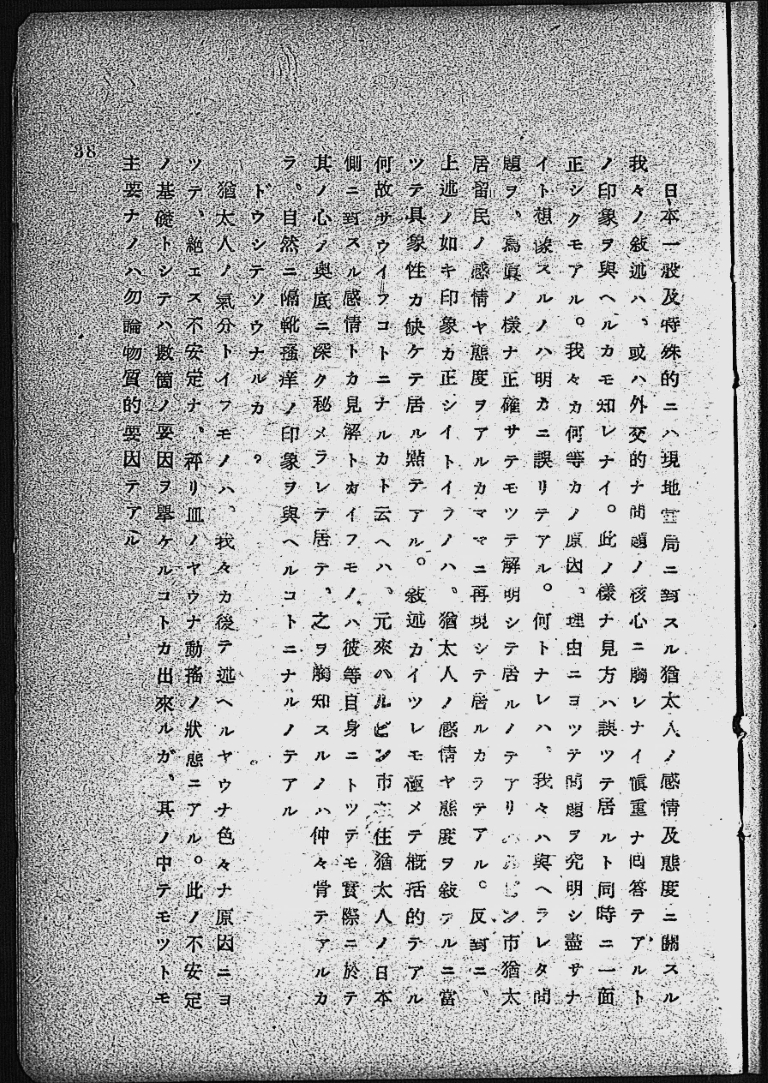 日本一般及特殊的ニハ現地當局ニ對スル猶太人ノ感情及態度ニ關スル
我々ノ敍述ハ、或ハ外交的ナ問題ノ核心ニ觸レナイ愼重ナ回答テアルト
ノ印象ヲ與ヘルカモ知レナイ。此ノ樣ナ見方ハ誤ツテ居ルト同時ニ一面
正シクモアル。我々カ何等カノ原因、理由ニヨツテ問題ヲ究明シ盡サナ
イト想像スルノハ明カニ誤リテアル。何トナレハ、我々ハ與ヘラレタ問
題ヲ、寫眞ノ樣ナ正確サテモツテ解明シテ居ルノテアリハルビン市猶太
居留民ノ感情ヤ態度ヲアルカママニ再現シテ居ルカラテアル。反對ニ、
上述ノ如キ印象カ正シイトイフノハ、猶太人ノ感情ヤ態度ヲ敍スルニ當
ツテ具象性カ缺ケテ居ル點テアル。敍述カイツレモ極メテ概括的テアル
何故サウイフコトニナルカト云ヘハ、元來ハルビン市在住猶太人ノ日本
側ニ對スル感情トカ見解トカイフモノハ彼等自身ニトツテモ實際ニ於テ
其ノ心ノ奥底ニ深ク秘メラレテ居テ、之ヲ胸知スルノハ仲々骨テアルカ
ラ、自然ニ隔靴搔痒ノ印象ヲ與ヘルコトニナルノテアル
ドウシテソウナルカ?
猶太人ノ氣分トイフモノハ、我々カ後テ述ヘルヤウナ色々ナ原因ニヨ
ツテ、絶エス不安定ナ、秤リ皿ノヤウナ動搖ノ狀態ニアル。此ノ不安定
ノ基礎トシテハ數箇ノ要因ヲ擧ケルコトカ出來ルガ、其ノ中テモツトモ
主要ナノハ勿論物質的要因テアル
38